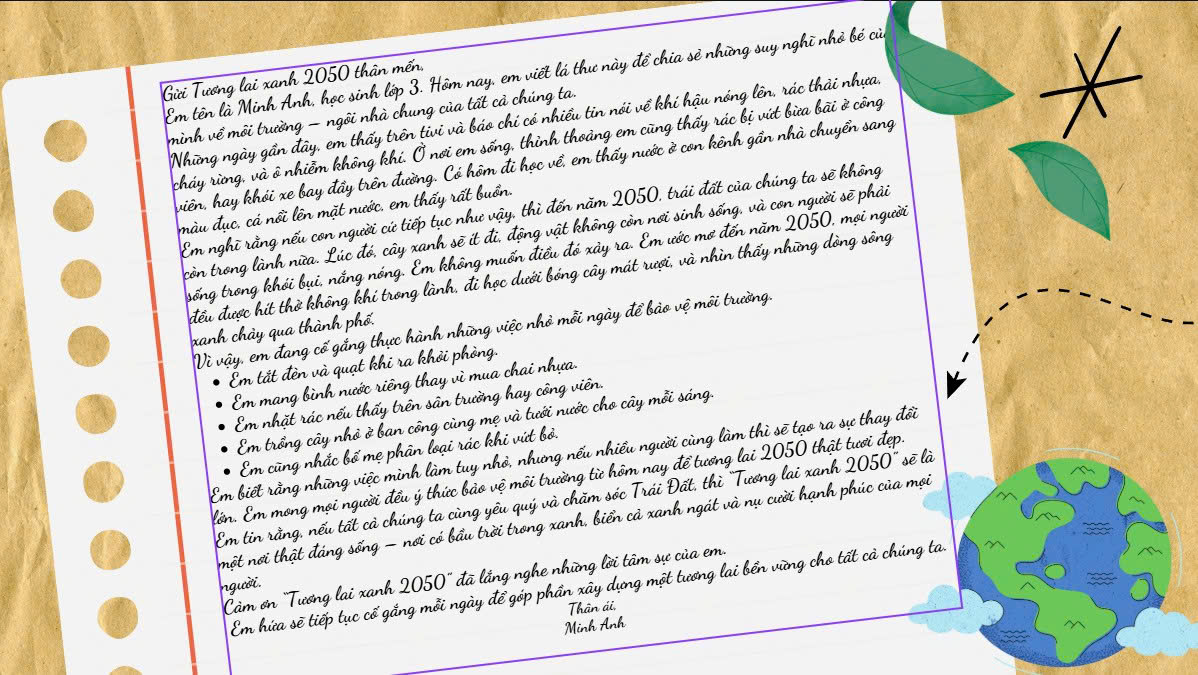 Gửi Tương lai xanh 2050 thân mến,
Em tên là Minh Anh, học sinh lớp 3. Hôm nay, em viết lá thư này để chia sẻ những suy nghĩ nhỏ bé của
mình về môi trường – ngôi nhà chung của tất cả chúng ta.
Những ngày gần đây, em thấy trên tivi và báo chí có nhiều tin nói về khí hậu nóng lên, rác thải nhựa,
cháy rừng, và ô nhiễm không khí. Ở nơi em sống, thỉnh thoảng em cũng thấy rác bị vứt bừa bãi ở công
viên, hay khói xe bay đầy trên đường. Có hôm đi học về, em thấy nước ở con kênh gần nhà chuyển sang
màu đục, cá nổi lên mặt nước, em thấy rất buồn.
Em nghĩ rằng nếu con người cứ tiếp tục như vậy, thì đến năm 2050, trái đất của chúng ta sẽ không
còn trong lành nữa. Lúc đó, cây xanh sẽ ít đi, động vật không còn nơi sinh sống, và con người sẽ phải
sống trong khói bụi, nắng nóng. Em không muốn điều đó xảy ra. Em ước mơ đến năm 2050, mọi người
đều được hít thở không khí trong lành, đi học dưới bóng cây mát rượi, và nhìn thấy những dòng sông
xanh chảy qua thành phố.
Vì vậy, em đang cố gắng thực hành những việc nhỏ mỗi ngày để bảo vệ môi trường.
• Em tắt đèn và quạt khi ra khỏi phòng.
• Em mang bình nước riêng thay vì mua chai nhựa.
• Em nhặt rác nếu thấy trên sân trường hay công viên.
• Em trồng cây nhỏ ở ban công cùng mẹ và tưới nước cho cây mỗi sáng.
• Em cũng nhắc bố mẹ phân loại rác khi vứt bỏ.
Em biết rằng những việc mình làm tuy nhỏ, nhưng nếu nhiều người cùng làm thì sẽ tạo ra sự thay đổi
lớn. Em mong mọi người đều ý thức bảo vệ môi trường từ hôm nay để tương lai 2050 thật tươi đẹp.
Em tin rằng, nếu tất cả chúng ta cùng yêu quý và chăm sóc Trái Đất, thì “Tương lai xanh 2050” sẽ là
một nơi thật đáng sống – nơi có bầu trời trong xanh, biển cả xanh ngát và nụ cười hạnh phúc của mọi
người.
Cảm ơn “Tương lai xanh 2050” đã lắng nghe những lời tâm sự của em.
Em hứa sẽ tiếp tục cố gắng mỗi ngày để góp phần xây dựng một tương lai bền vững cho tất cả chúng ta.
Thân ái,
Minh Anh